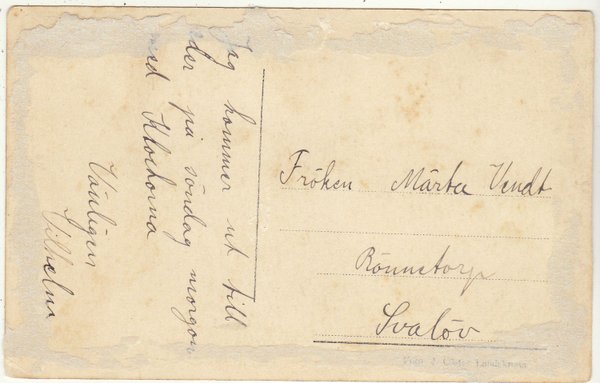 Jag kommer ut till
eder på söndag morgon
med Klockorna
Vänligen
Vilhelm
Fröken Märta Vendt
Rönnetorp
Svalöv